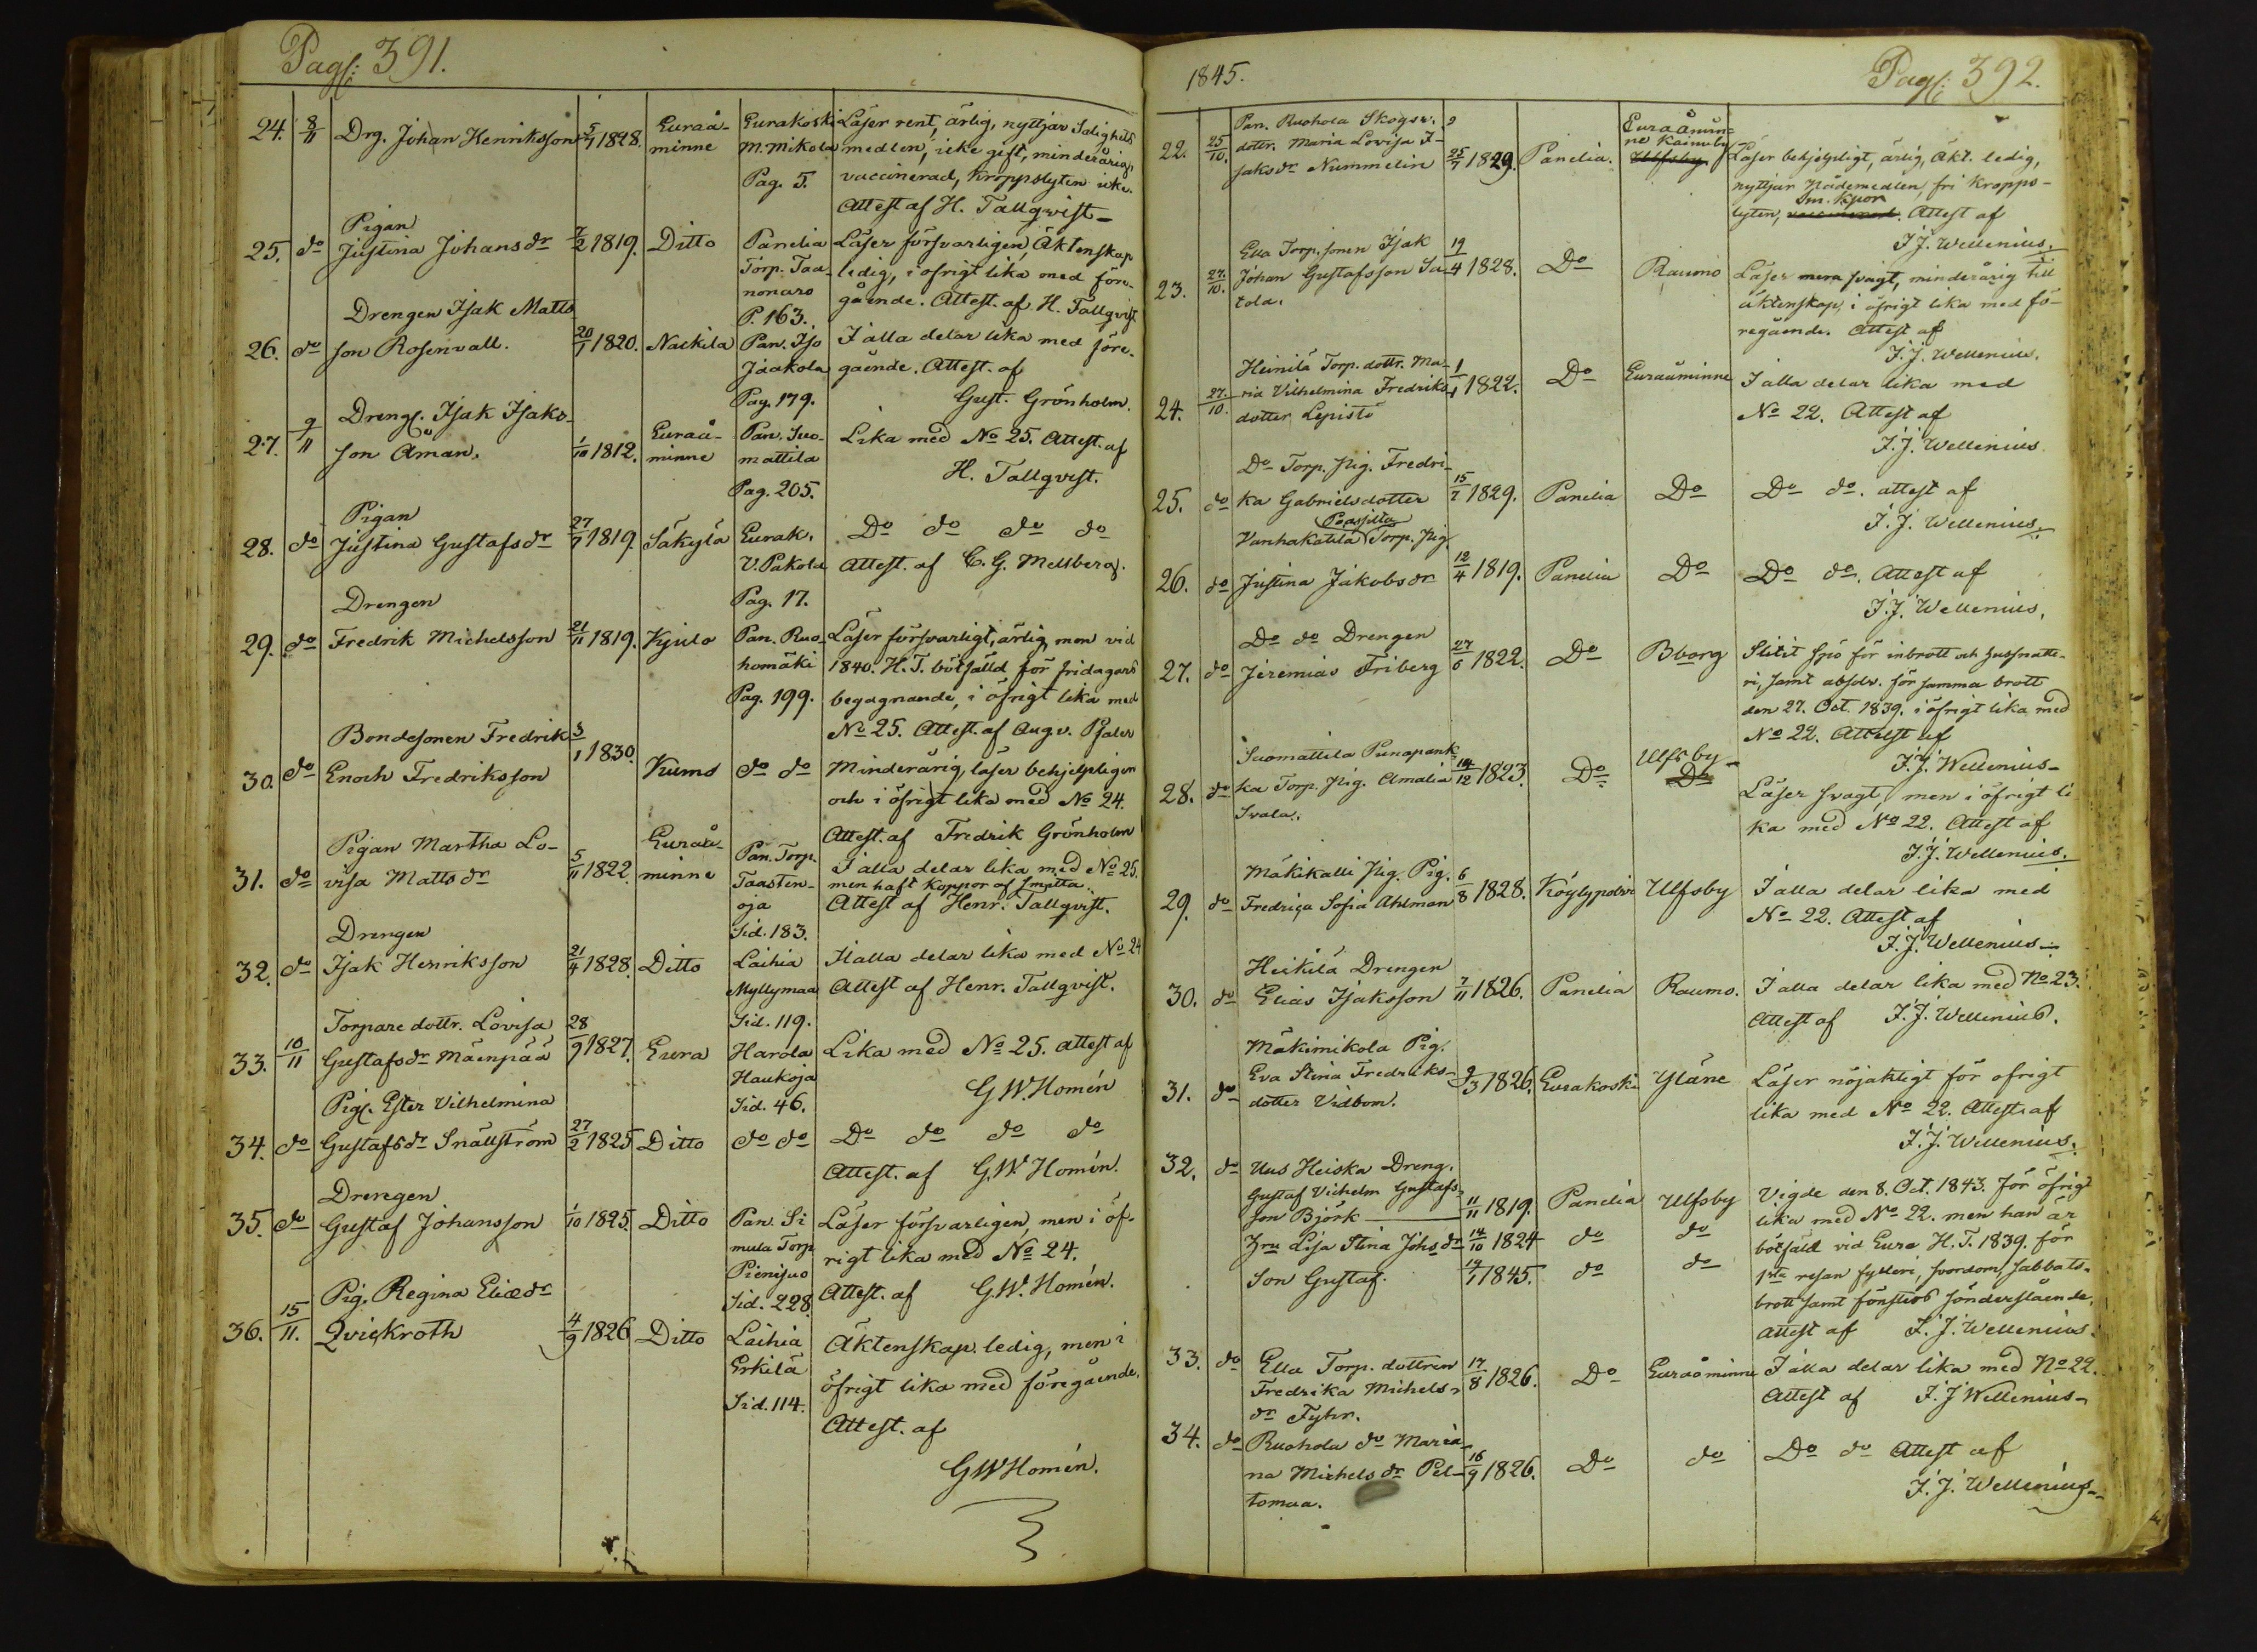 Pag: 391.
24. 8/11 Drg. Johan Henriksson 5/7 1828. Euraå- Eurakoski Läser rent, ärlig, nyttjar Salighets
minne M. Mikola medlen, icke gift, minderårig,
Pag. 5. vaccinerad, Kroppslyten icke.
Attest af H. Tallqvist
Pigan
25. do Justina Johans dr 7/2 1819. Ditto Panelia Läser försvarligen, Äktenskap
Torp. Taa- ledig, i öfrigt lika med före-
nonaro gående. Attest. af H. Tallqvist
Drengen Isak Matts P. 163.
26. do son Rosenvall. 20/1 1820. Nackila Pan. Iso I alla delar lika med före-
Jaakola gående. Attest. af
Pag. 179. Gust. Grönholm.
Dreng. Isak Isaks-
27. 9/11 son Åman. 1/10 1812. Euraå- Pan. Suo- Lika med No 25. Attest. af
minne mattila H. Tallqvist.
Pag. 205.
Pigan
28. do Justina Gustafs dr 27/7 1819. Säkylä Eurak. Do do do do
V. Pakola Attest. af C. G. Mellberg.
Drengen Pag. 17.
29. do Fredrik Michelsson 21/11 1819. Kjulo Pan. Ruo- Läser försvarligt, ärlig, men vid
homäki 1840. H. T. bötfälld för fridagars
Pag. 199. begagnande, i öfrigt lika med
No 25. Attest. af Aug. v. Pfaler
Bondesonen Fredrik 3/1 1830.
30. do Enoch Fredriksson Kumo do do Minderårig, läser behjelpligen
och i öfrigt lika med No 24.
Attest. af Fredrik Grönholm
Pigan Martha Lo- Euraå- Pan. Torp.
31. do visa Matts dr 5/11 1822. minne Taasten- I alla delar lika med No 25.
men haft Koppor af Smitta.
oja Attest af Henr. Tallqvist.
Drengen Sid. 183.
32. do Isak Henriksson 21/4 1828. Ditto Laihia I alla delar lika med No 24
Myllymaa Attest af Henr. Tallqvist.
Torpare dottr. Lovisa 28/9 1827. Sid. 119.
33. 10/11 Gustafs dr Mäenpää Eura Harola Lika med No 25. attest af
Haukoja G. W. Homén
Pig. Ester Vilhelmina Sid. 46.
34. do Gustafs dr Snällström 27/2 1825 Ditto do do Do do do do
Attest. af G. W. Homén.
Drengen
35. do Gustaf Johansson 1/10 1825. Ditto Pan. Si Läser försvarligen, men i öf-
mula Torp rigt lika med No 24.
Pienisuo Attest. af G. W. Homén.
Sid. 228.
Pig. Regina Eliæ dr
36. 15/11. Qvickroth 4/9 1826 Ditto Laihia Äktenskap. ledig, men i
Erkilä öfrigt lika med föregående.
Sid. 114. Attest. af
G W Homén.
1845. Pag: 392.
Pan. Ruohola Skogsv.
22. 25/10. dottr. Maria Lovisa I- 25/7 1829. Panelia. Euraåmin-
ne Kainuby
Ulfsby Läser behjelpligt, ärlig, Äkt. ledig,
saks dr Nummelin nyttjar Nådemedlen, fri Kropps-
lyten, Sm. Kpor vaccinerad. Attest af
J. J. Wellenius.
Ella Torp. sonen Isak
23. 27/10. Johan Gustafsson Su- 19/4 1828. Do Raumo Läser mera svagt, minderårig till
tola. äktenskap, i öfrigt lika med fö-
regående. Attest af
J. J. Wellenius.
Heinilä Torp. dottr. Ma-
24. 27/10. ria Vilhelmina Fredriks- 1/1 1822. Do Euraåminne I alla delar lika med
dotter Lepistö No 22. Attest af
J. J. Wellenius
Do Torp. Pig. Fredri-
25. do ka Gabrielsdotter 15/7 1829. Panelia Do Do do. attest af
J. J. Wellenius.
Paassilta
Vanhakatila Torp. Pig.
26. do Justina Jakobs dr 12/4 1819. Panelia Do Do do. Attest af
J. J. Wellenius.
Do do Drengen
27. do Jeremias Friberg 27/6 1822. Do Bborg Slitit spö för inbrott och snatte-
ri, samt absolv. för samma brott
den 27. Oct. 1839. i öfrigt lika med
No 22. Attest af
J. J. Wellenius
Suomattila Punapank-
28. do ka Torp. Pig. Amalia 14/12 1823. Do Ulfsby
Do
Svala. Läser svagt, men i öfrigt li
ka med No 22. Attest af
J. J. Wellenius.
Mäkikalli Pig. Pig.
29. do Fredrica Sofia Ahlman 6/8 1828. Köylypolvi Ulfsby I alla delar lika med
No 22. Attest af
J. J. Wellenius
Heikilä Drengen
30. do Elias Isaksson 7/11 1826. Panelia Raumo. I alla delar lika med No 23.
Attest af J. J. Wellenius.
Mäkimikola Pig.
31. do Eva Stina Fredriks- 9/3 1826. Eurakoski Yläne Läser nöjaktigt för öfrigt
dotter Vidbom. lika med No 22. Attest. af
J. J. Wellenius.
32. do Uus Heiska Dreng.
Gustaf Vilhelm Gustafs-
son Björk 11/11 1819. Panelia Ulfsby Vigde den 8. Oct. 1843. För öfrigt
lika med No 22. men han är
Hru Lisa Stina Johs dr 14/10 1824 do do bötfäld vid Eura H. T. 1839. för
Son Gustaf. 14/1 1845. do do 1sta resan fylleri, svordom, sabbats-
brott samt fönsters sönderslående.
Attest af J. J. Wellenius.
33. do Ella Torp. dottren 17/8 1826. Do Euraåminne I alla delar lika med No 22.
Fredrika Michels- Attest af J. J Wellenius
dr Fyhr.
34. do Ruohola do Maria-
na Michels dr Pel- 16/9 1826. Do do Do do Attest af
tomaa. J. J. Wellenius